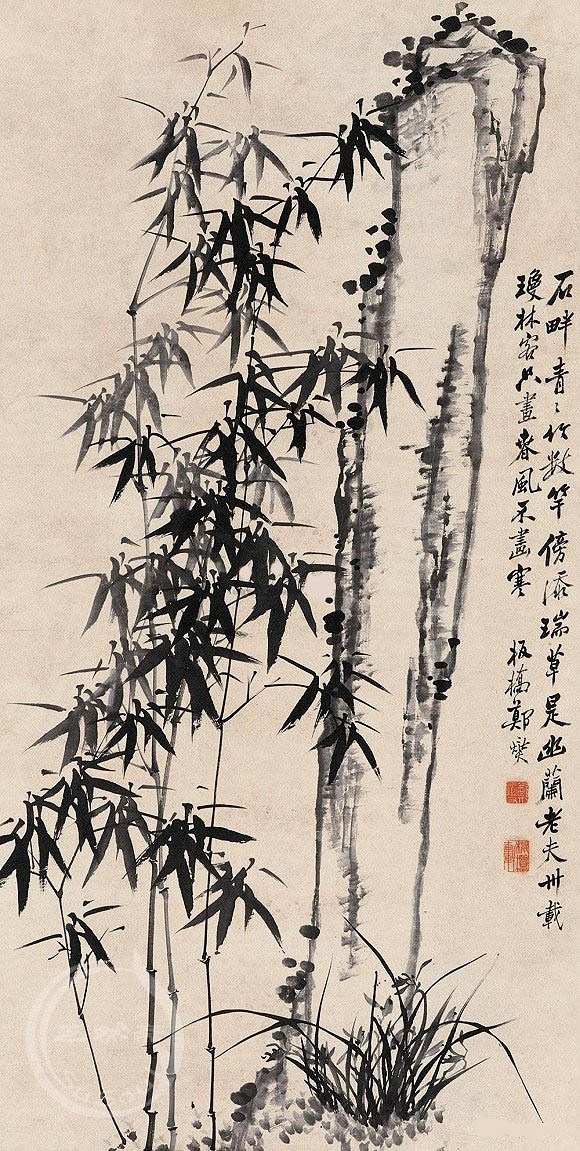 石畔青々竹数竿傍添瑞草是幽蘭老夫卅載
瓊林客只畫春風不畫寒
板橋鄭燮